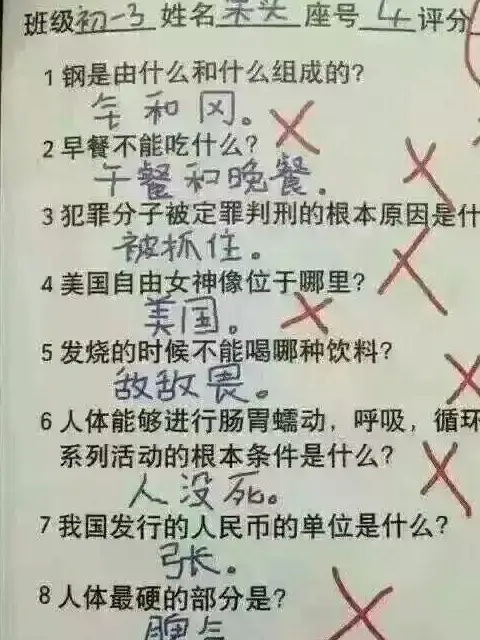 班级初一3 姓名呆头 座号4 评分
1 钢是由什么和什么组成的？
钅和冈。
2 早餐不能吃什么？
午餐和晚餐.
3 犯罪分子被定罪判刑的根本原因是什
被抓住。
4 美国自由女神像位于哪里？
美国。
5 发烧的时候不能喝哪种饮料？
敌敌畏。
6 人体能够进行肠胃蠕动，呼吸，循环
系列活动的根本条件是什么？
人没死。
7 我国发行的人民币的单位是什么？
弓长。
8 人体最硬的部分是？
脾气